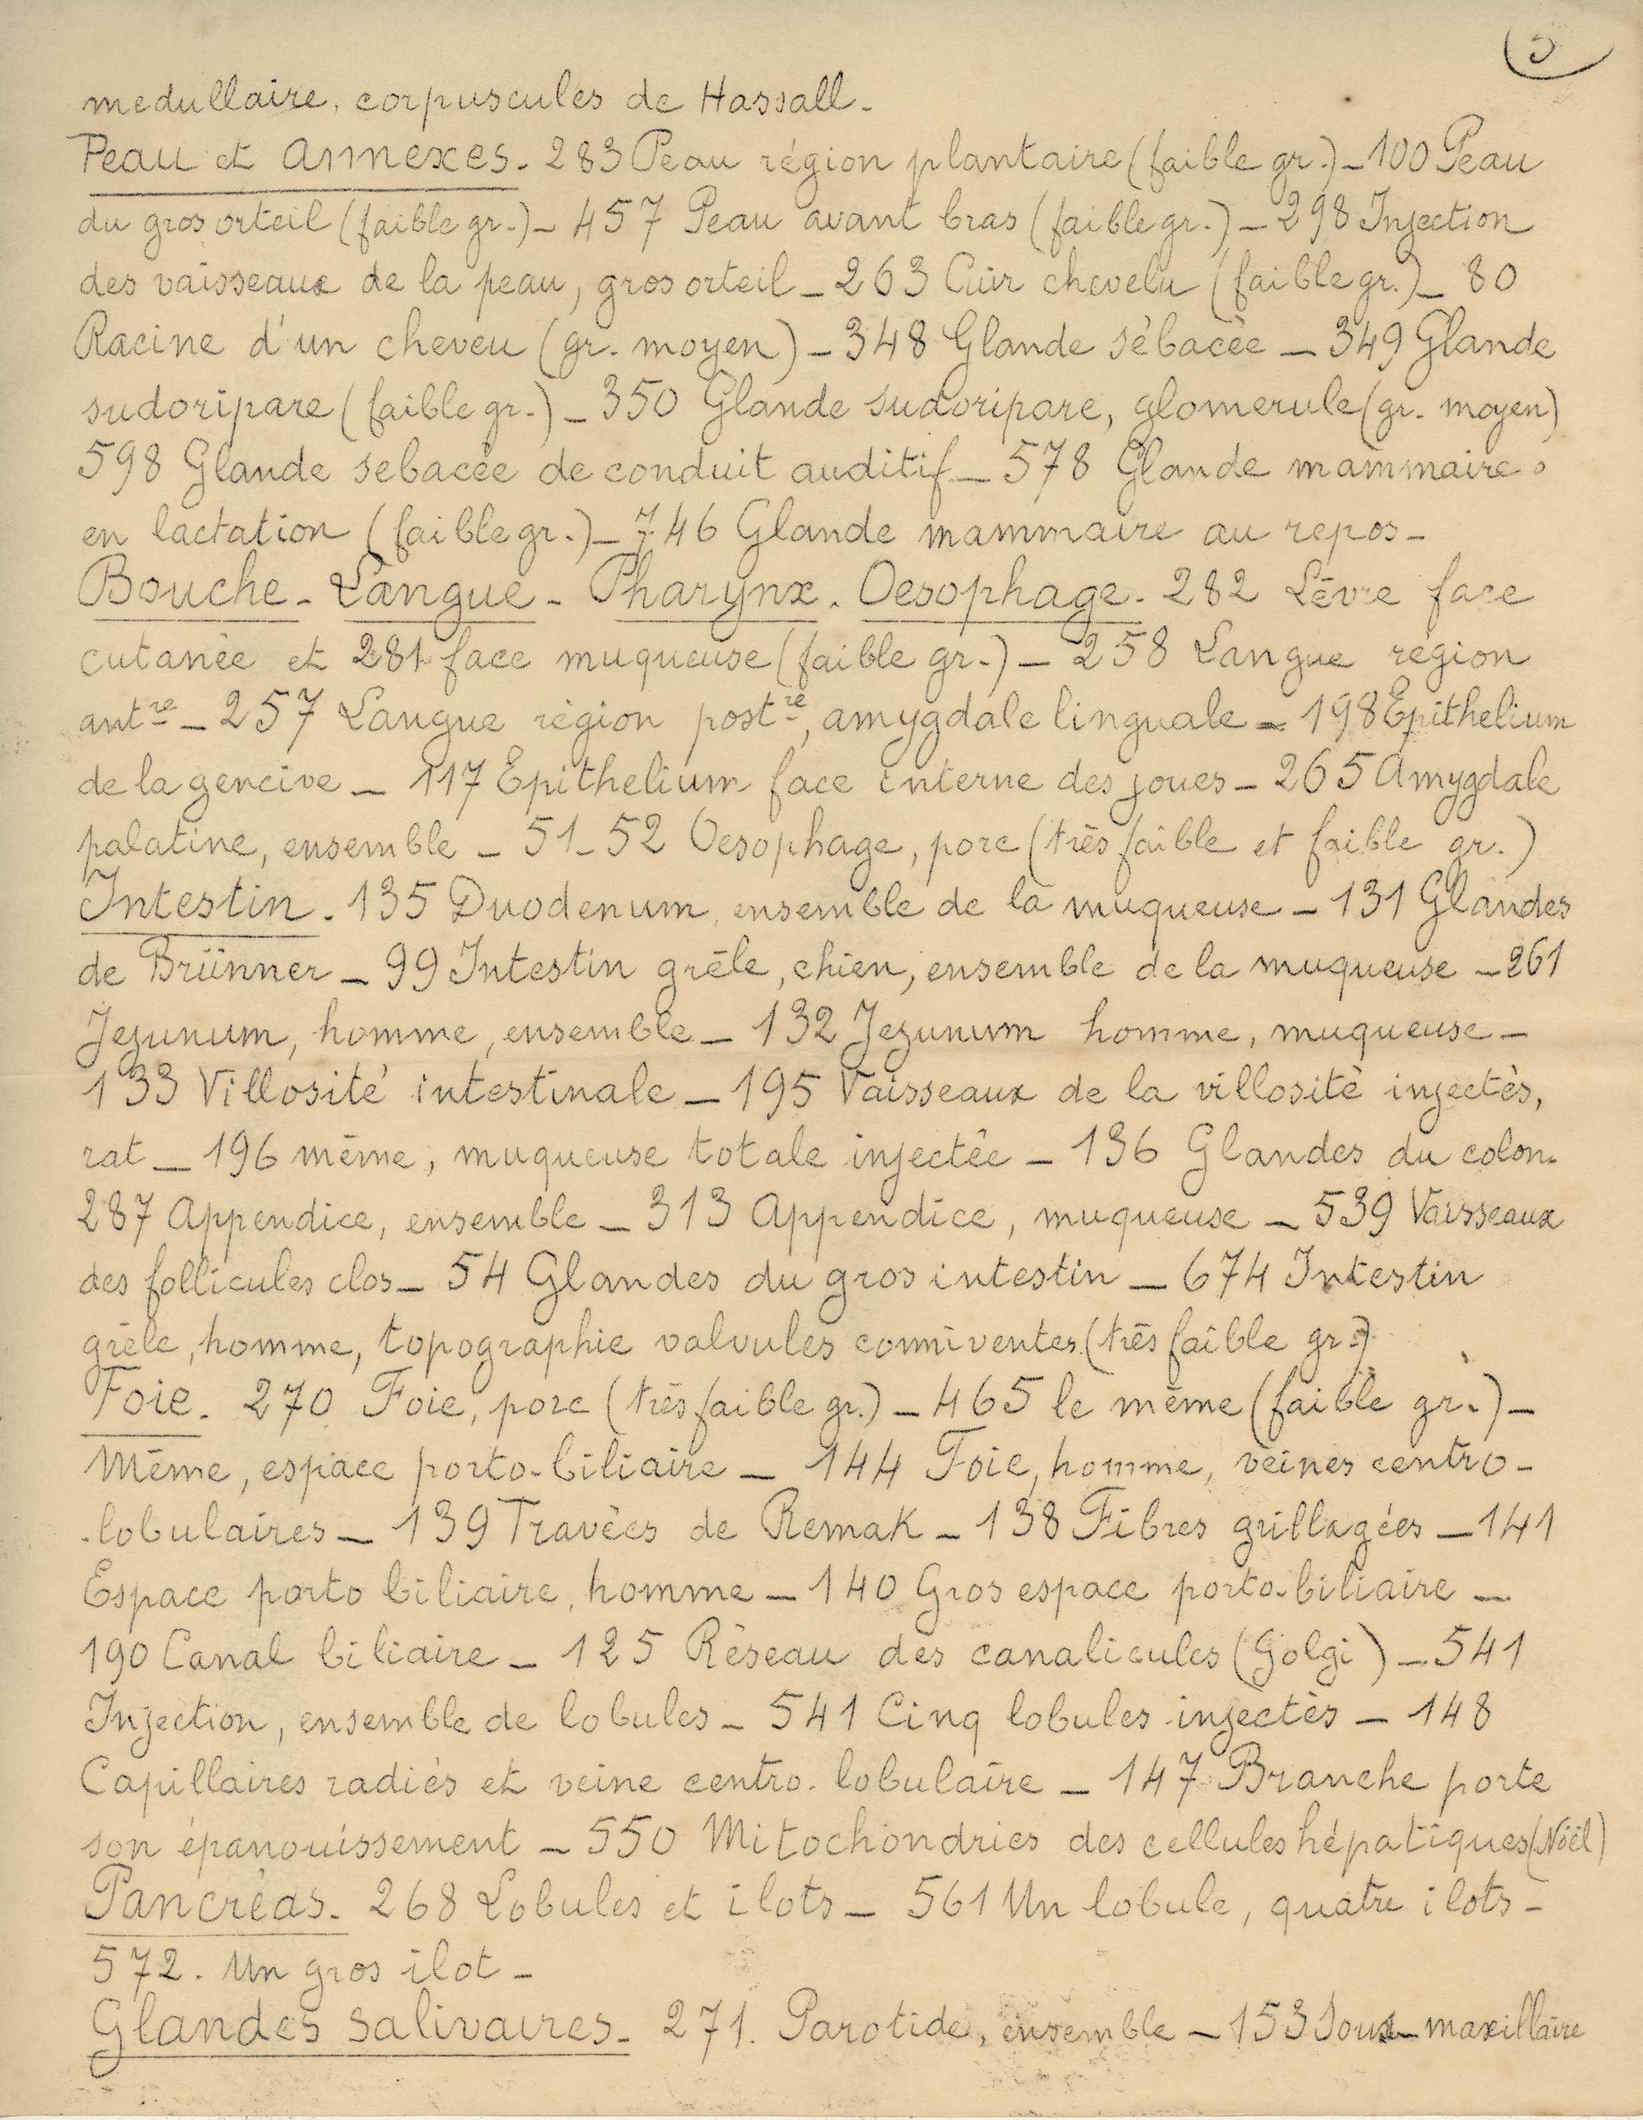 5
medullaire, corpuscules de Hassall -
Peau et annexes - 283 Peau région plantaire (faible gr.) - 100 Peau
du gros orteil (faible gr.) - 457 Peau avant bras (faible gr.) - 298 Injection
des vaisseaux de la peau, gros orteil - 263 Cuir chevelu (faible gr.) - 80
Racine d'un cheveu (gr. moyen) - 348 Glande sébacée - 349 Glande
sudoripare (faible gr.) - 350 Glande sudoripare, glomerule (gr. moyen)
598 Glande sebacée de conduit auditif - 578 Glande mammaire
en lactation (faible gr.) - 746 Glande mammaire au repos -
Bouche - Langue - Pharynx. Oesophage - 282 Lèvre face
cutanée et 281 face muqueuse (faible gr.) - 258 Langue région
antre - 257 Langue région postre, amygdale linguale - 198 Epithelium
de la gencive - 117 Epithelium face interne des joues - 265 Amygdale
palatine, ensemble - 51-52 Oesophage, porc (très faible et faible gr.)
Intestin. 135 Duodenum, ensemble de la muqueuse - 131 Glandes
de Brünner - 99 Intestin grêle, chien, ensemble de la muqueuse - 261
Jejunum, homme, ensemble - 132 Jejunum homme, muqueuse -
133 Villosité intestinale - 195 Vaisseaux de la villosité injectés,
rat - 196 même, muqueuse totale injectée - 136 Glandes du colon.
287 Appendice, ensemble - 313 Appendice, muqueuse - 539 Vaisseaux
des follicules clos - 54 Glandes du gros intestin - 674 Intestin
grêle, homme, topographie valvules conniventes (très faible gr.)
Foie. 270 Foie, porc (très faible gr.) - 465 le même (faible gr.) -
Même, espace porto-biliaire - 144 Foie, homme, veines centro-
-lobulaires - 139 Travées de Remak - 138 Fibres grillagées - 141
Espace porto biliaire, homme - 140 Gros espace porto-biliaire -
190 Canal biliaire - 125 Réseau des canalicules (Golgi) - 541
Injection, ensemble de lobules - 541 Cinq lobules injectés - 148
Capillaires radiés et veine centro-lobulaire - 147 Branche porte
son épanouissement - 550 Mitochondries des cellules hépatiques (Nöel)
Pancréas. 268 Lobules et ilots - 561 Un lobule, quatre ilots -
572. Un gros ilot -
Glandes salivaires - 271. Parotide, ensemble - 153 Sous-maxillaire